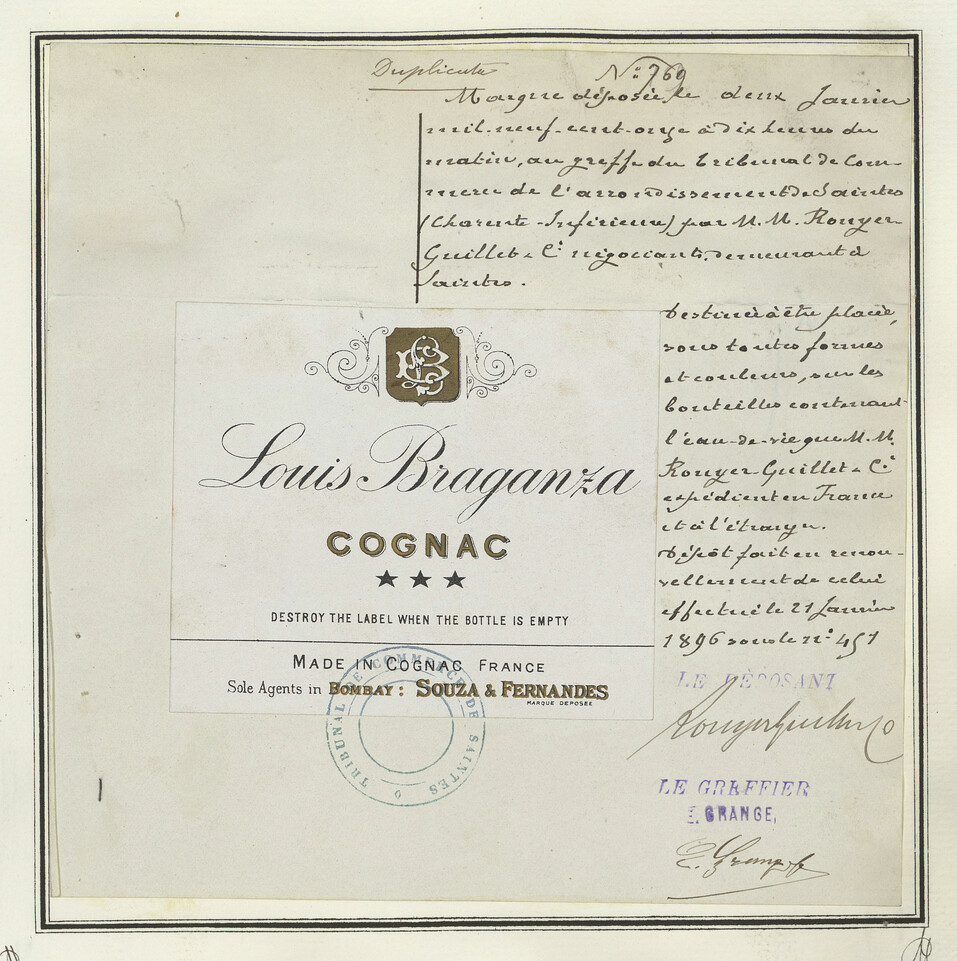 Duplicata
N° 769
Marque déposée le deux Janvier
mil-neuf-cent-onze à dix heures du
matin, au greffe du Tribunal de Com-
merce de l'arrondissement de Saintes
(Charente-Inférieure) par M.M. Rouyer
Guillet & Cie négociants, demeurant à
Saintes.
LB
Louis Braganza
COGNAC
★ ★ ★
DESTROY THE LABEL WHEN THE BOTTLE IS EMPTY
MADE IN COGNAC FRANCE
Sole Agents in BOMBAY: SOUZA & FERNANDES
MARQUE DEPOSÉE
TRIBUNAL DE COMMERCE DE SAINTES
Destinée à être placée,
sous toutes formes
et couleurs, sur les
bouteilles contenant
l'eau-de-vie que M.M.
Rouyer Guillet & Cie
expédient en France
et à l'étranger.
Dépôt fait en renou-
vellement de celui
effectué le 21 Janvier
1896 sous le n° 451
LE DÉPOSANT
Rouyer Guillet & Co
LE GREFFIER
E. GRANGE,
E. Grange